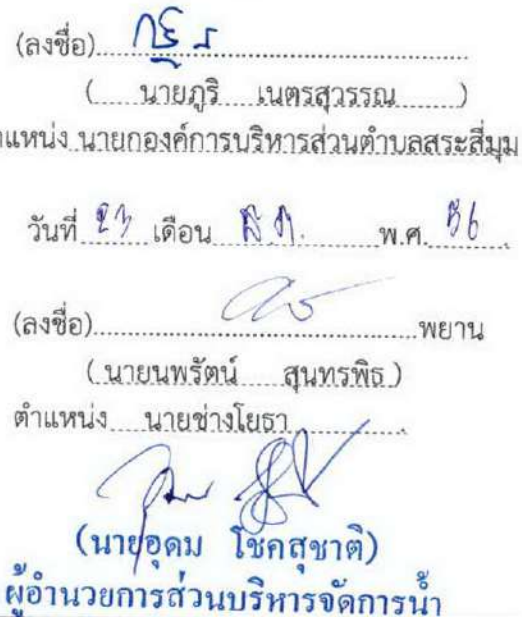 (ลงชื่อ)
( นายภูริ เนตรสุวรรณ )
ตำแหน่ง นายกองค์การบริหารส่วนตำบลสระสี่มุม
วันที่ 23 เดือน ส.ค. พ.ศ. 56
(ลงชื่อ) พยาน
( นายนพรัตน์ สุนทรพิธ )
ตำแหน่ง นายช่างโยธา
(นายอุดม โชคสุชาติ)
ผู้อำนวยการส่วนบริหารจัดการน้ำ